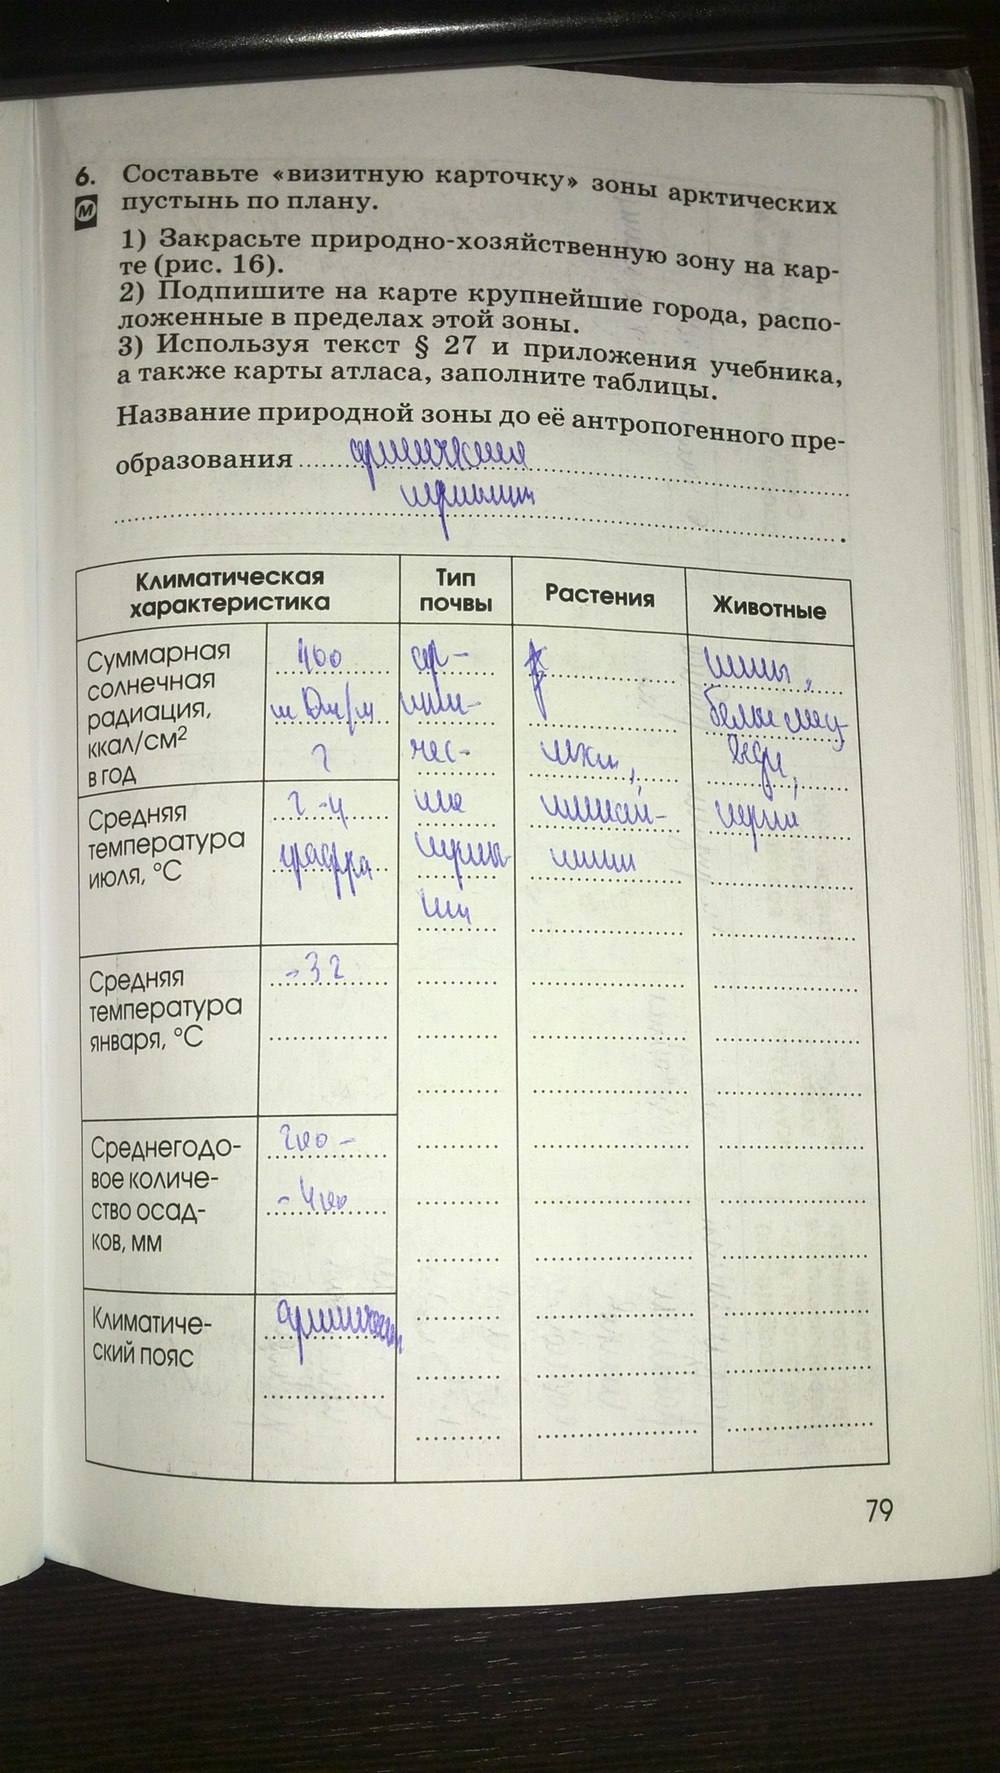 6. Составьте «визитную карточку» зоны арктических
пустынь по плану.
М
1) Закрасьте природно-хозяйственную зону на кар-
те (рис. 16).
2) Подпишите на карте крупнейшие города, распо-
ложенные в пределах этой зоны.
3) Используя текст § 27 и приложения учебника,
а также карты атласа, заполните таблицы.
Название природной зоны до её антропогенного пре-
образования арктическая
пустыня
Климатическая
характеристика
Тип
почвы
Растения
Животные
Суммарная
солнечная
радиация,
ккал/см2
в год
400
м Дж/м
2
Средняя
температура
июля, °С
2-4
градуса
Средняя
температура
января, °С
-32
Среднегодо-
вое количе-
ство осад-
ков, мм
200-
-400
Климатиче-
ский пояс
арктический
ар-
кти-
чес-
кие
пусты-
ни
мхи,
лишай-
ники
белые мед
веди,
нерпы
79